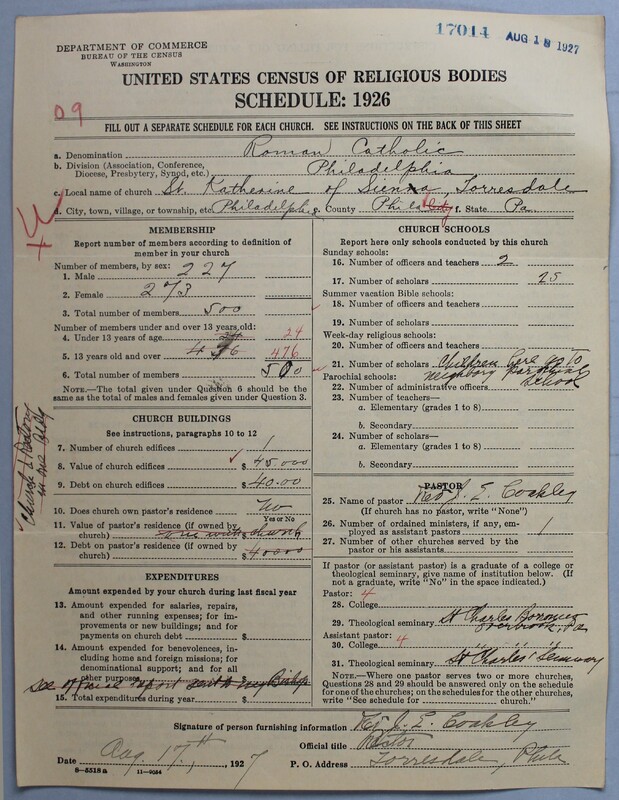 17014 AUG 18 1927
DEPARTMENT OF COMMERCE
BUREAU OF THE CENSUS
WASHINGTON
UNITED STATES CENSUS OF RELIGIOUS BODIES
SCHEDULE: 1926
09
FILL OUT A SEPARATE SCHEDULE FOR EACH CHURCH. SEE INSTRUCTIONS ON THE BACK OF THIS SHEET
a. Denomination Roman Catholic
b. Division (Association, Conference, Diocese, Presbytery, Synod, etc.) Philadelphia
c. Local name of church St. Katherine of Sienna, Torresdale
d. City, town, village, or township, etc. Philadelphia e. County Phila City f. State Pa.
MEMBERSHIP
Report number of members according to definition of
member in your church
Number of members, by sex:
1. Male 227
2. Female 273
3. Total number of members 500
Number of members under and over 13 years old:
4. Under 13 years of age 24
5. 13 years old and over 476
6. Total number of members 500
NOTE.—The total given under Question 6 should be the
same as the total of males and females given under Question 3.
CHURCH BUILDINGS
See instructions, paragraphs 10 to 12
7. Number of church edifices 1
8. Value of church edifices $45.000
9. Debt on church edifices $40.00
Church & Rectory
in one Bldg
10. Does church own pastor's residence No
Yes or No
11. Value of pastor's residence (if owned by
church) one with church
12. Debt on pastor's residence (if owned by
church) $40000
EXPENDITURES
Amount expended by your church during last fiscal year
13. Amount expended for salaries, repairs,
and other running expenses; for im-
provements or new buildings; and for
payments on church debt $
14. Amount expended for benevolences, in-
cluding home and foreign missions; for
denominational support; and for all
other purposes
See official report sent to my Bishop
15. Total expenditures during year $
CHURCH SCHOOLS
Report here only schools conducted by this church
Sunday schools:
16. Number of officers and teachers 2
17. Number of scholars 25
Summer vacation Bible schools:
18. Number of officers and teachers
19. Number of scholars
Week-day religious schools:
20. Number of officers and teachers
21. Number of scholars Children here go to
Parochial schools: neighboring parochial
22. Number of administrative officers school
23. Number of teachers—
a. Elementary (grades 1 to 8)
b. Secondary
24. Number of scholars—
a. Elementary (grades 1 to 8)
b. Secondary
PASTOR
25. Name of pastor Rev. J. E. Coakley
(If church has no pastor, write "None")
26. Number of ordained ministers, if any, em-
ployed as assistant pastors 1
27. Number of other churches served by the
pastor or his assistants
If pastor (or assistant pastor) is a graduate of a college or
theological seminary, give name of institution below. (If
not a graduate, write "No" in the space indicated.)
Pastor: 4
28. College
29. Theological seminary St Charles Borromeo
Overbrook, Pa
Assistant pastor: 4
30. College " " "
31. Theological seminary St Charles' Seminary
NOTE.—Where one pastor serves two or more churches,
Questions 28 and 29 should be answered only on the schedule
for one of the churches; on the schedules for the other churches,
write "See schedule for church."
Signature of person furnishing information Rev J. E. Coakley
Official title Rector
Date Aug 17th, 1927 P. O. Address Torresdale, Phila
8—5518a 11—9034